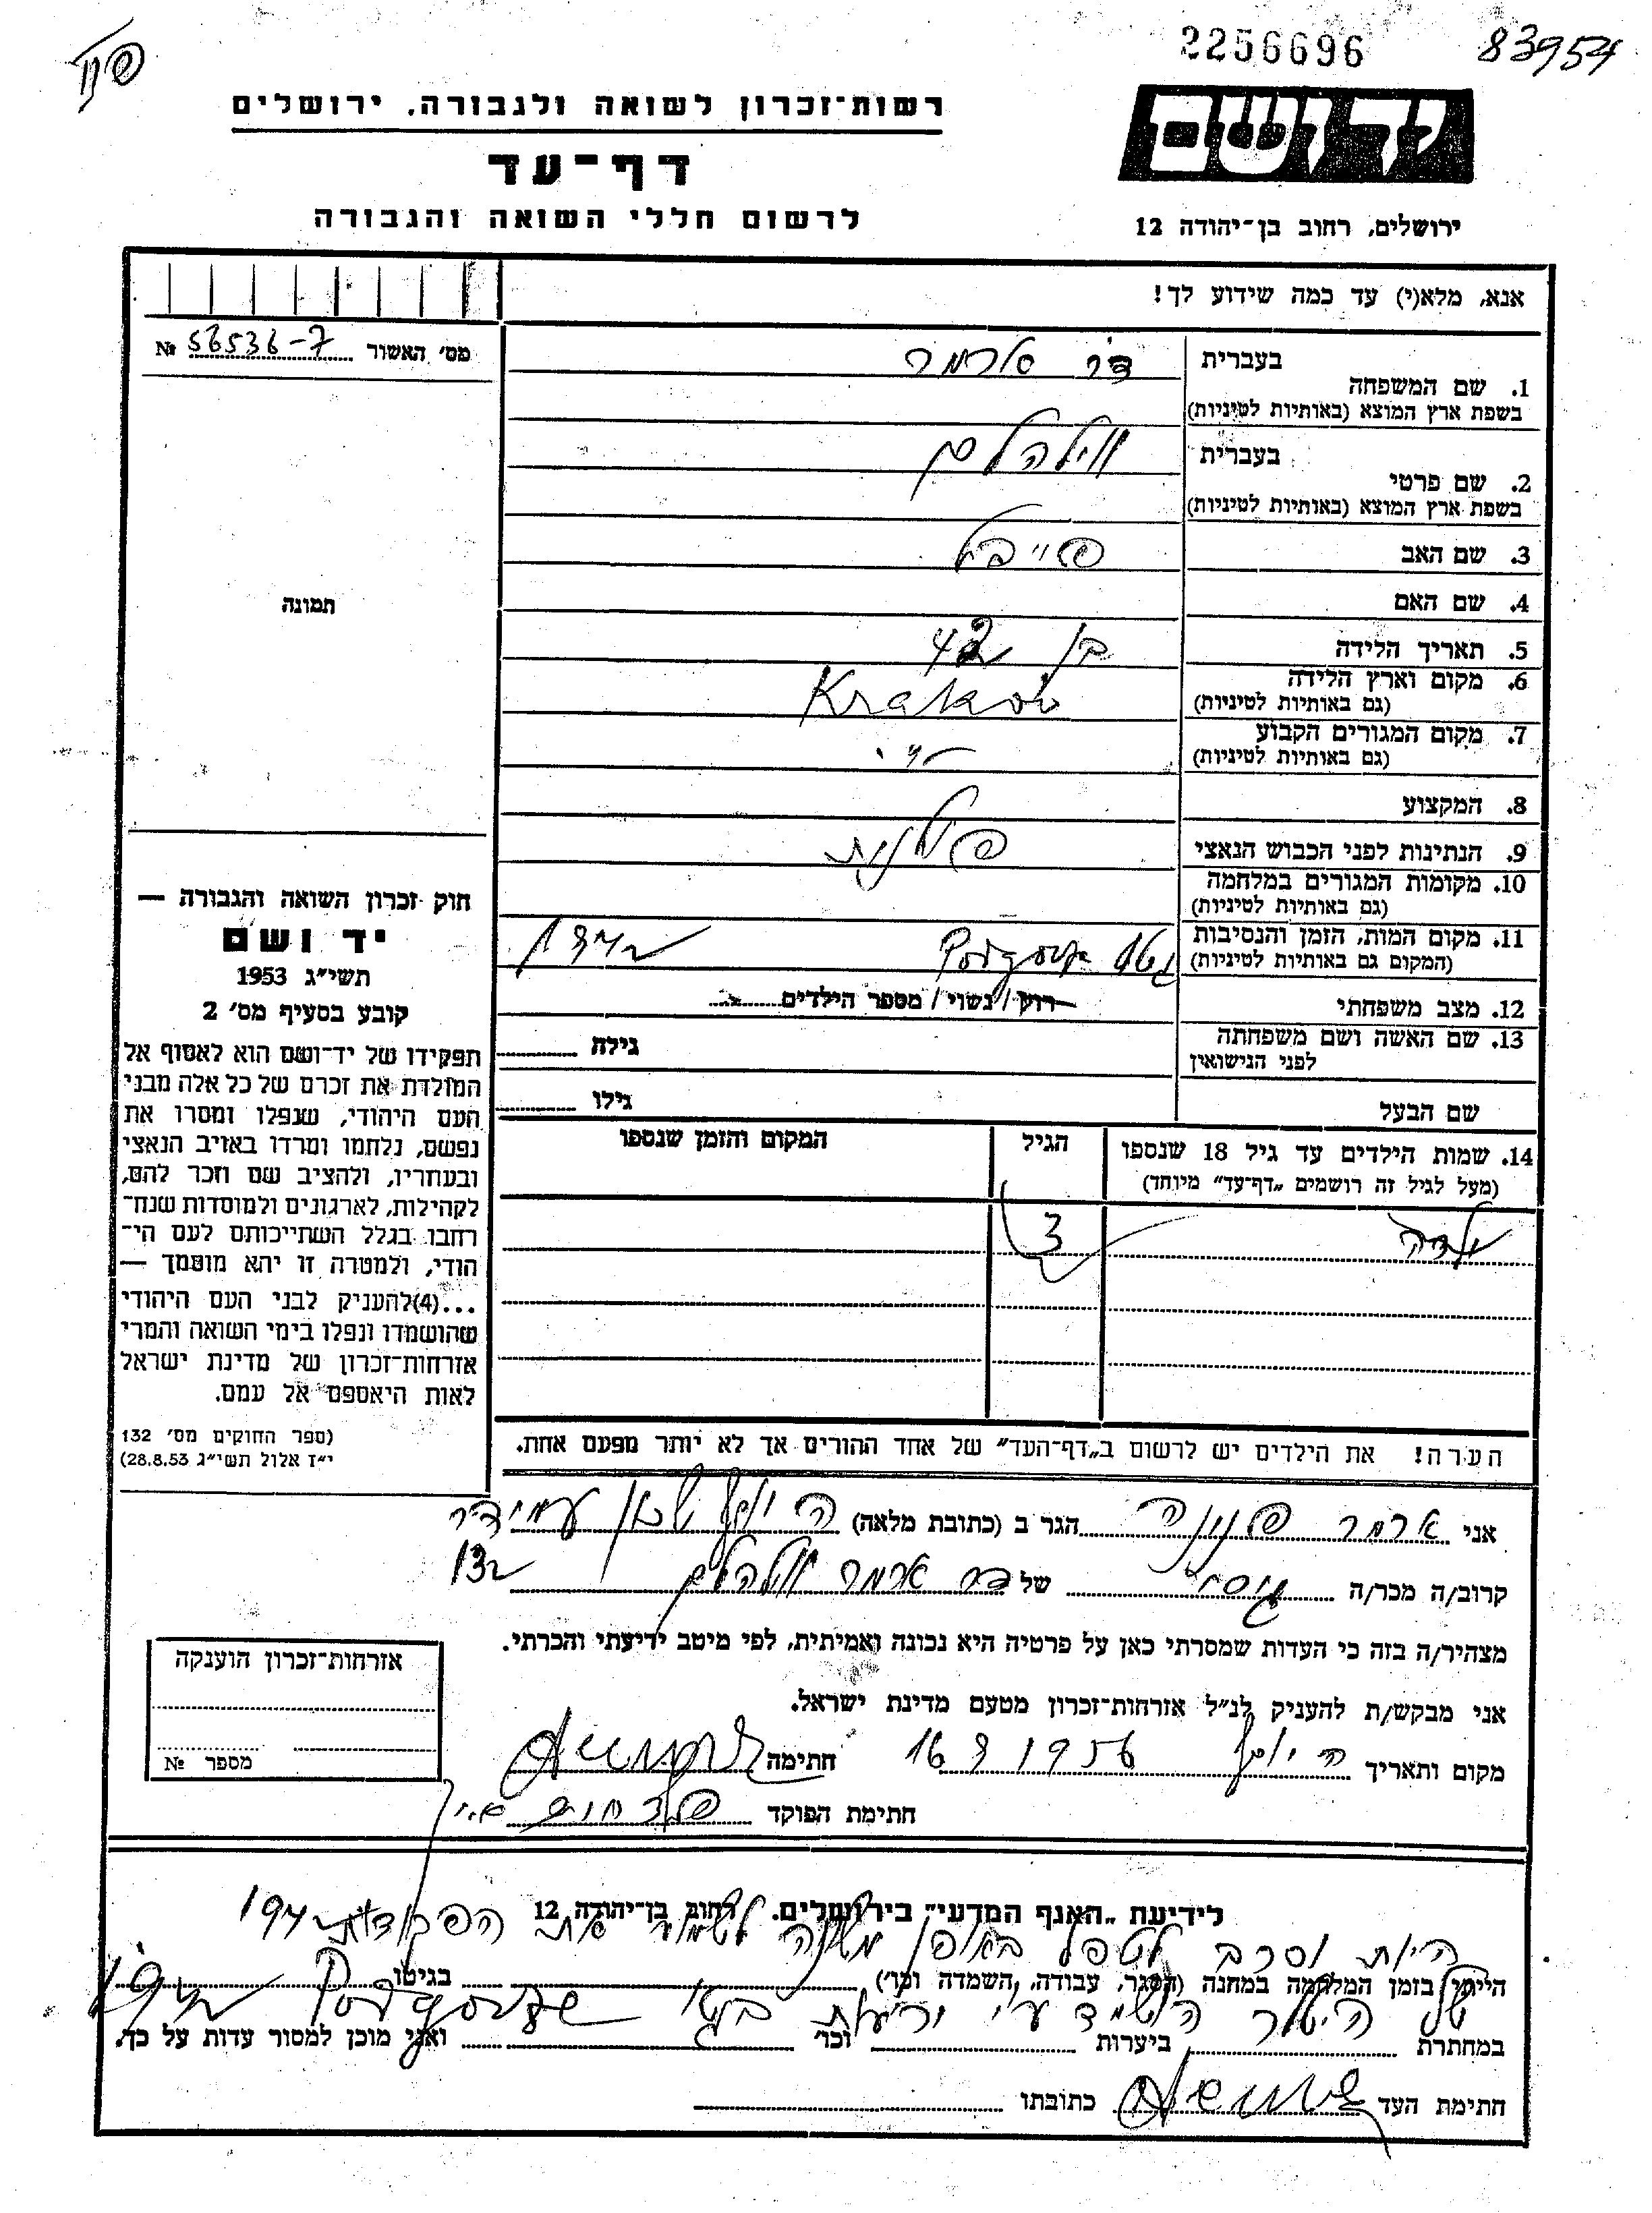 2256696
83954
יד ושם
ירושלים, רחוב בן־יהודה 12
רשות־זכרון לשואה ולגבורה, ירושלים
דף־עד
לרשום חללי השואה והגבורה
אנא, מלא(י) עד כמה שידוע לך!
מס׳ האשור 56536-7 №
תמונה
1. שם המשפחה בעברית דר ארמר
בשפת ארץ המוצא (באותיות לטיניות)
2. שם פרטי בעברית ווילהלם
בשפת ארץ המוצא (באותיות לטיניות)
3. שם האב פייבל
4. שם האם
5. תאריך הלידה בן 42
6. מקום וארץ הלידה Krakow
(גם באותיות לטיניות)
7. מקום המגורים הקבוע
(גם באותיות לטיניות)
8. המקצוע
9. הנתינות לפני הכבוש הנאצי פולנית
10. מקומות המגורים במלחמה
(גם באותיות לטיניות)
11. מקום המות, הזמן והנסיבות גטו
(המקום גם באותיות לטיניות)
12. מצב משפחתי רווק / נשוי / מספר הילדים
13. שם האשה ושם משפחתה גילה
לפני הנישואין
שם הבעל גילו
14. שמות הילדים עד גיל 18 שנספו הגיל המקום והזמן שנספו
(מעל לגיל זה רושמים „דף־עד" מיוחד)
ילדה 3
הערה! את הילדים יש לרשום ב„דף־העד" של אחד ההורים אך לא יותר מפעם אחת.
חוק זכרון השואה והגבורה —
יד ושם
תשי״ג 1953
קובע בסעיף מס׳ 2
תפקידו של יד־ושם הוא לאסוף אל
המולדת את זכרם של כל אלה מבני
העם היהודי, שנפלו ומסרו את
נפשם, נלחמו ומרדו באויב הנאצי
ובעוזריו, ולהציב שם וזכר להם,
לקהילות, לארגונים ולמוסדות שנח־
רבו בגלל השתייכותם לעם הי־
הודי, ולמטרה זו יהא מוסמך —
...(4) להעניק לבני העם היהודי
שהושמדו ונפלו בימי השואה והמרי
אזרחות־זכרון של מדינת ישראל
לאות היאספם אל עמם.
(ספר החוקים מס׳ 132
י״ז אלול תשי״ג 28.8.53)
אני ארמר פנינה הגר ב (כתובת מלאה) שכון עמידר
קרוב/ה מכר/ה גיסה של דר ארמר ווילהלם 132
מצהיר/ה בזה כי העדות שמסרתי כאן על פרטיה היא נכונה ואמיתית, לפי מיטב ידיעתי והכרתי.
אני מבקש/ת להעניק לנ״ל אזרחות־זכרון מטעם מדינת ישראל.
מקום ותאריך 16 9 1956 חתימה
חתימת הפוקד
אזרחות־זכרון הוענקה
מספר №
לידיעת „האגף המדעי" בירושלים, רחוב בן־יהודה 12
היות וסרב לטפל באופן משונה
הייתי בזמן המלחמה במחנה (הסגר, עבודה, השמדה וכו׳) בגיטו
של היטלר הושמד ע״י יריות בגטו
במחתרת ביערות וכו׳ ואני מוכן למסור עדות על כך.
חתימת העד כתובתו